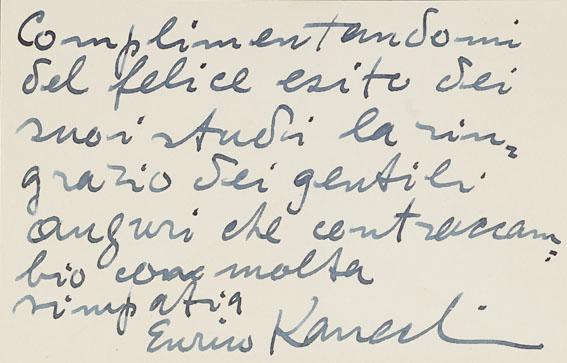 Complimentandomi
del felice esito dei
suoi studi la rin=
grazio dei gentili
auguri che contraccam=
bio con molta
simpatia
Enrico